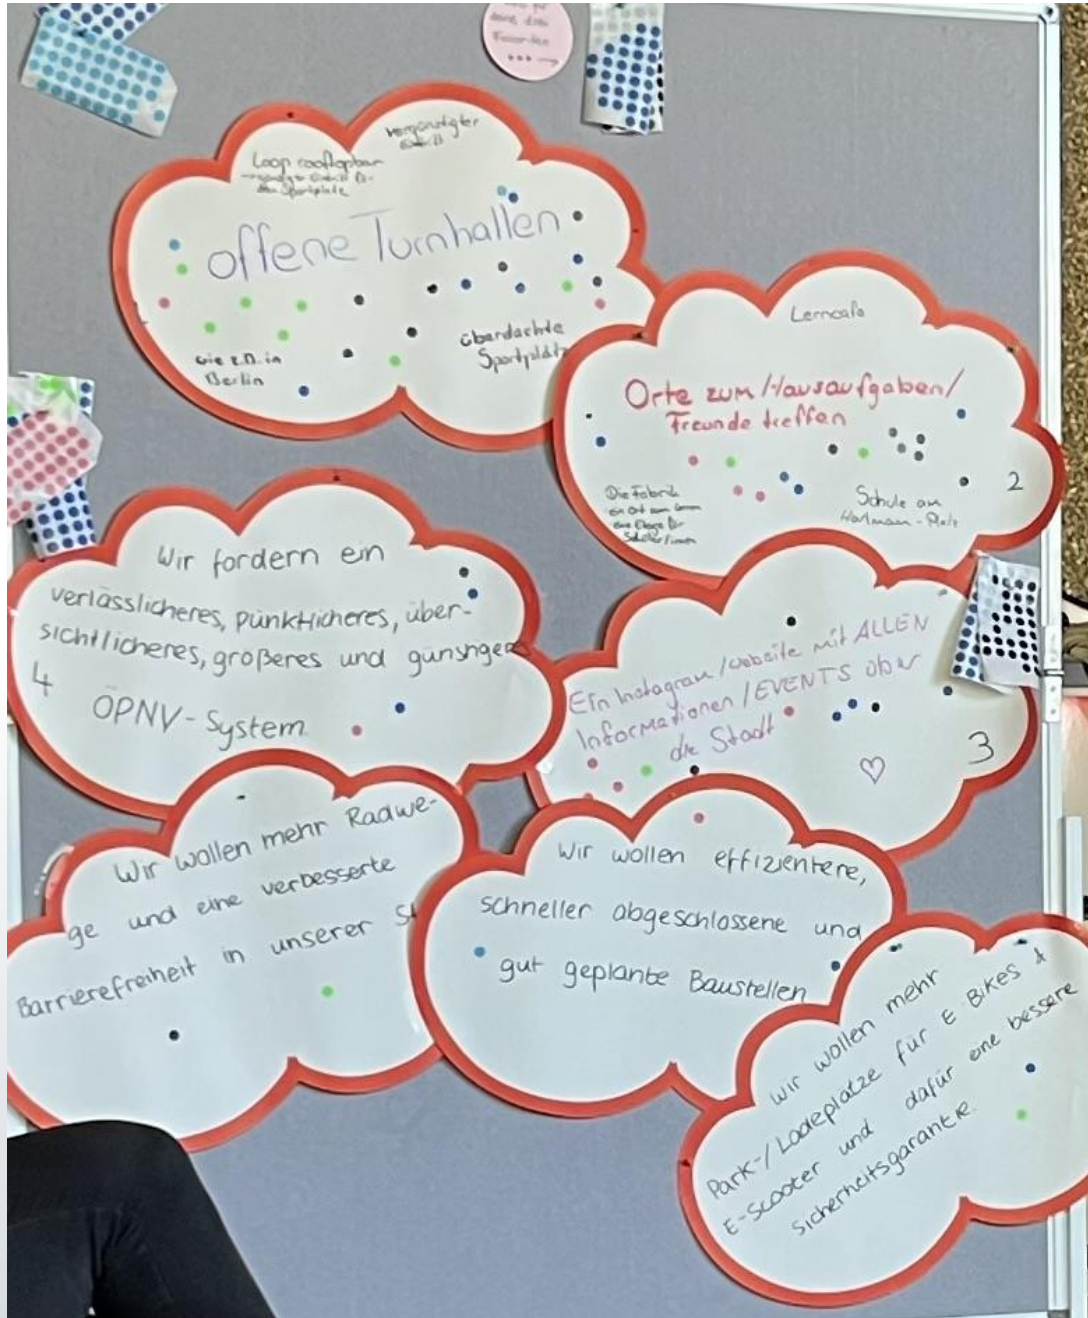 deine drei
Favoriten
Loop rooftopbar
vergünstigter
Eintritt
offene Turnhallen
wie z.B. in
Berlin
überdachte
Sportplätze
Lerncafe
Orte zum Hausaufgaben/
Freunde treffen
2
Die Fabrik
Schüler/innen
Schule am
Hartmann-Platz
Wir fordern ein
verlässlicheres, pünktlicheres, über-
sichtlicheres, größeres und günstigeres
4
ÖPNV-System
Ein Instagram/Website mit ALLEN
Informationen/EVENTS über
die Stadt
♡
3
Wir wollen mehr Radwe-
ge und eine verbesserte
Barrierefreiheit in unserer St
Wir wollen effizientere,
schneller abgeschlossene und
gut geplante Baustellen
Wir wollen mehr
Park-/Ladeplätze für E Bikes &
E-Scooter und dafür eine bessere
Sicherheitsgarantie.